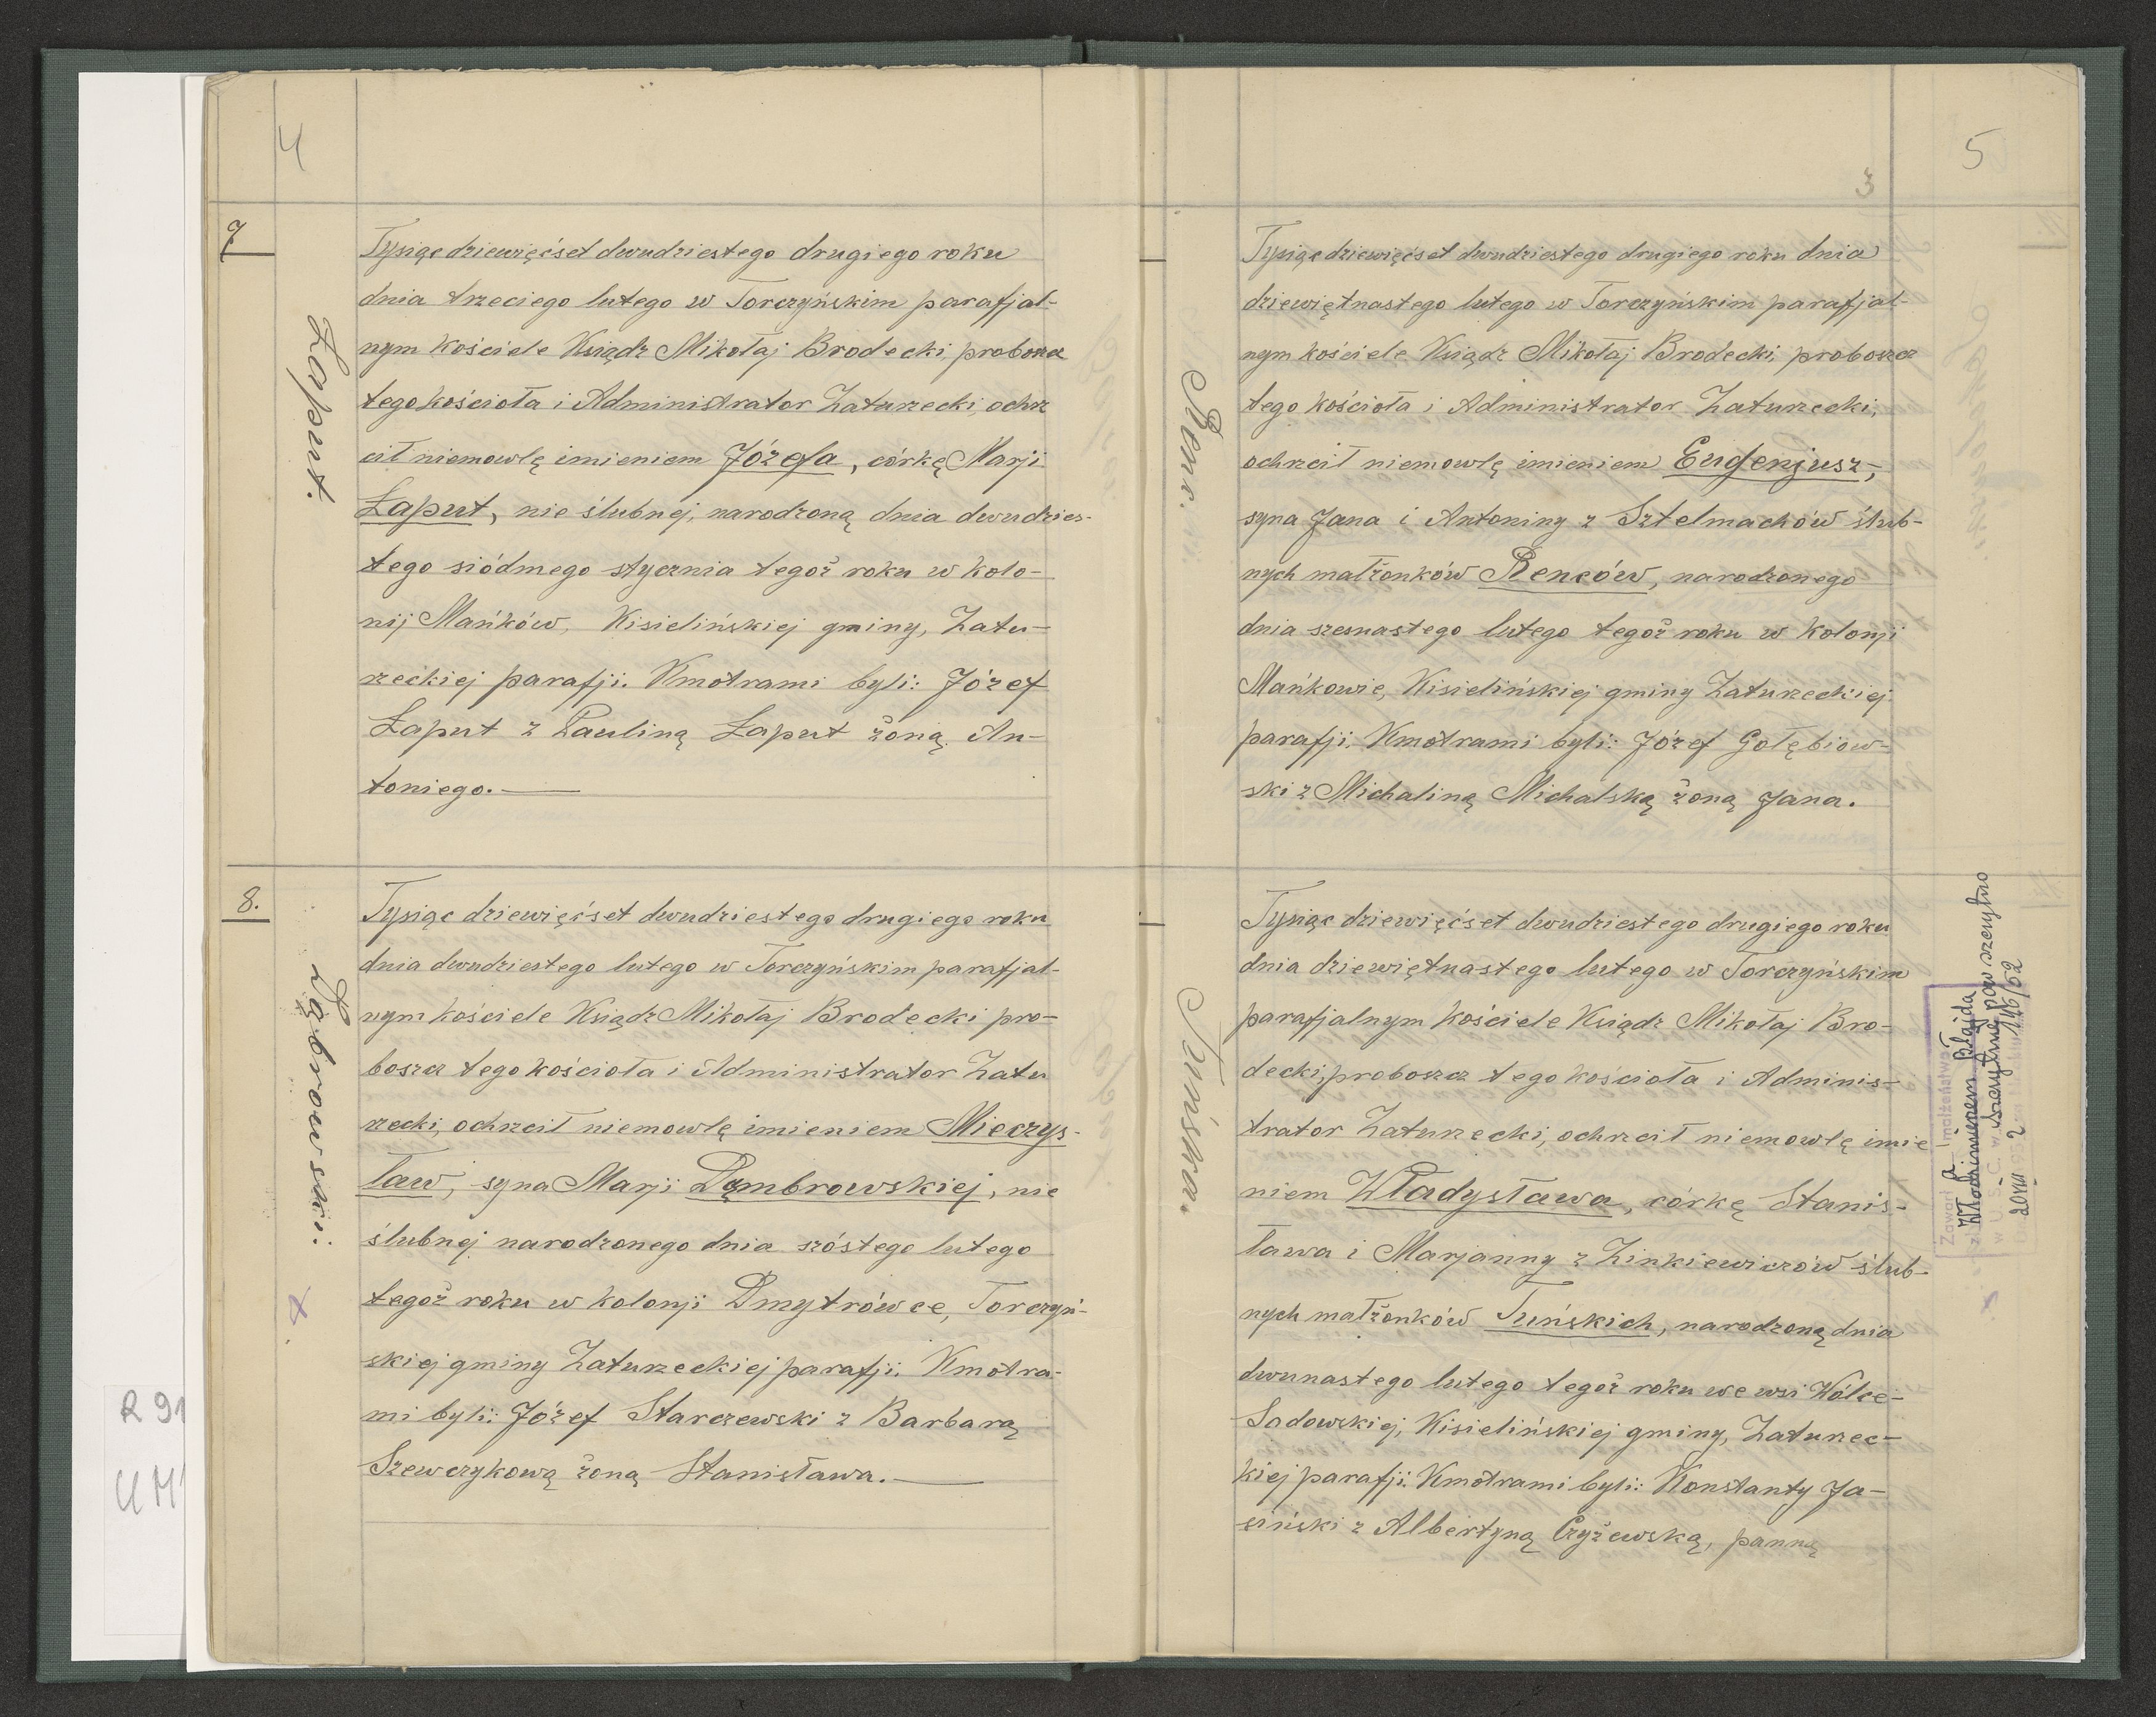 4
7
Łaput.
Tysiąc dziewięćset dwudziestego drugiego roku
dnia trzeciego lutego w Torczyńskim parafjal-
nym kościele Ksiądz Mikołaj Brodecki, proboszcz
tego kościoła i Administrator Zaturzecki, ochrz
cił niemowlę imieniem Józefa, córkę Marji
Łaput, nie ślubnej, narodzoną dnia dwudzies-
tego siódmego stycznia tegoż roku w kolo-
nij Mańków, Kisielińskiej gminy, Zatu-
rzeckiej parafji. Kmotrami byli: Józef
Łaput z Pauliną Łaput żoną An-
toniego.
8.
Dąbrowski:
x
Tysiąc dziewięćset dwudziestego drugiego roku
dnia dwudziestego lutego w Torczyńskim parafjal-
nym kościele Ksiądz Mikołaj Brodecki pro-
boszcz tego kościoła i Administrator Zatu
rzecki, ochrzcił niemowlę imieniem Mieczys-
ław, syna Marji Dąmbrowskiej, nie
ślubnej narodzonego dnia szóstego lutego
tegoż roku w kolonji Dmytrówce, Torczyń-
skiej gminy Zaturzeckiej parafji. Kmotra-
mi byli: Józef Starczewski z Barbarą
Szewczykową żoną Stanisława.
R 91
UM
5
3
Renc.
Tysiąc dziewięćset dwudziestego drugiego roku dnia
dziewiętnastego lutego w Torczyńskim parafjal-
nym kościele Ksiądz Mikołaj Brodecki, proboszcz
tego kościoła i Administrator Zaturzecki,
ochrzcił niemowlę imieniem Eugenjusz,
syna Jana i Antoniny z Sztelmachów ślub-
nych małżonków Renców, narodzonego
dnia szesnastego lutego tegoż roku w Kolonji
Mańkowie, Kisielińskiej gminy Zaturzeckiej
parafji. Kmotrami byli: Józef Gołębiow-
ski z Michaliną Michalską żoną Jana.
Tuńska.
Tysiąc dziewięćset dwudziestego drugiego roku
dnia dziewiętnastego lutego w Torczyńskim
parafjalnym kościele Ksiądz Mikołaj Bro-
decki, proboszcz tego kościoła i Adminis-
trator Zaturzecki, ochrzcił niemowlę imie-
niem Władysława, córkę Stanis-
ława i Marjanny z Zinkiewiczów ślub-
nych małżonków Tuńskich, narodzoną dnia
dwunastego lutego tegoż roku we wsi Wólce-
Sadowskiej, Kisielińskiej gminy, Zaturzec-
kiej parafji. Kmotrami byli: Konstanty Ja-
siński z Albertyną Czyżewską, panną
Zawarł a małżeństwo
z Włodzimierzem Blajda
w U. S. C. w Szczytnie pow szczytno
146/52